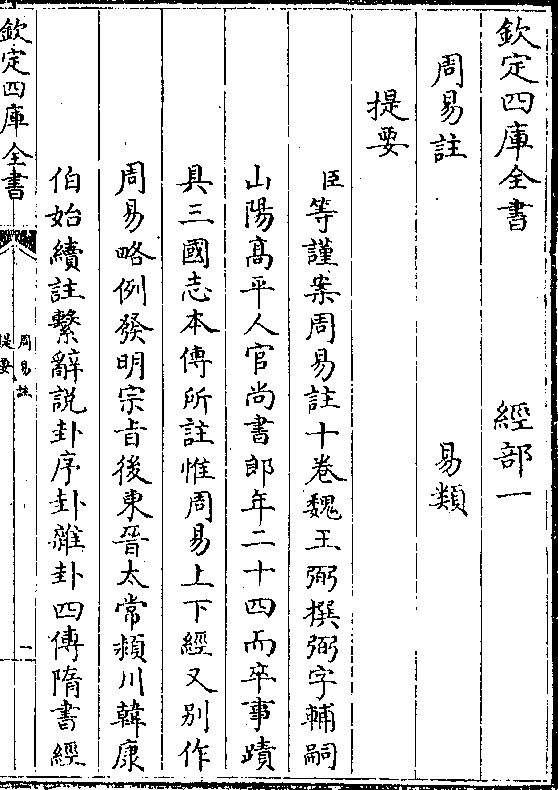 欽定四庫全書　經部一
周易註　易類
提要
臣等謹案周易註十卷魏王弼撰弼字輔嗣
山陽髙平人官尚書郎年二十四而卒事蹟
具三國志本傳所註惟周易上下經又别作
周易略例發明宗㫖後東晉太常頴川韓康
伯始續註繫辭説卦序卦雜卦四傳隋書經
欽定四庫全書
周易註
提要
一